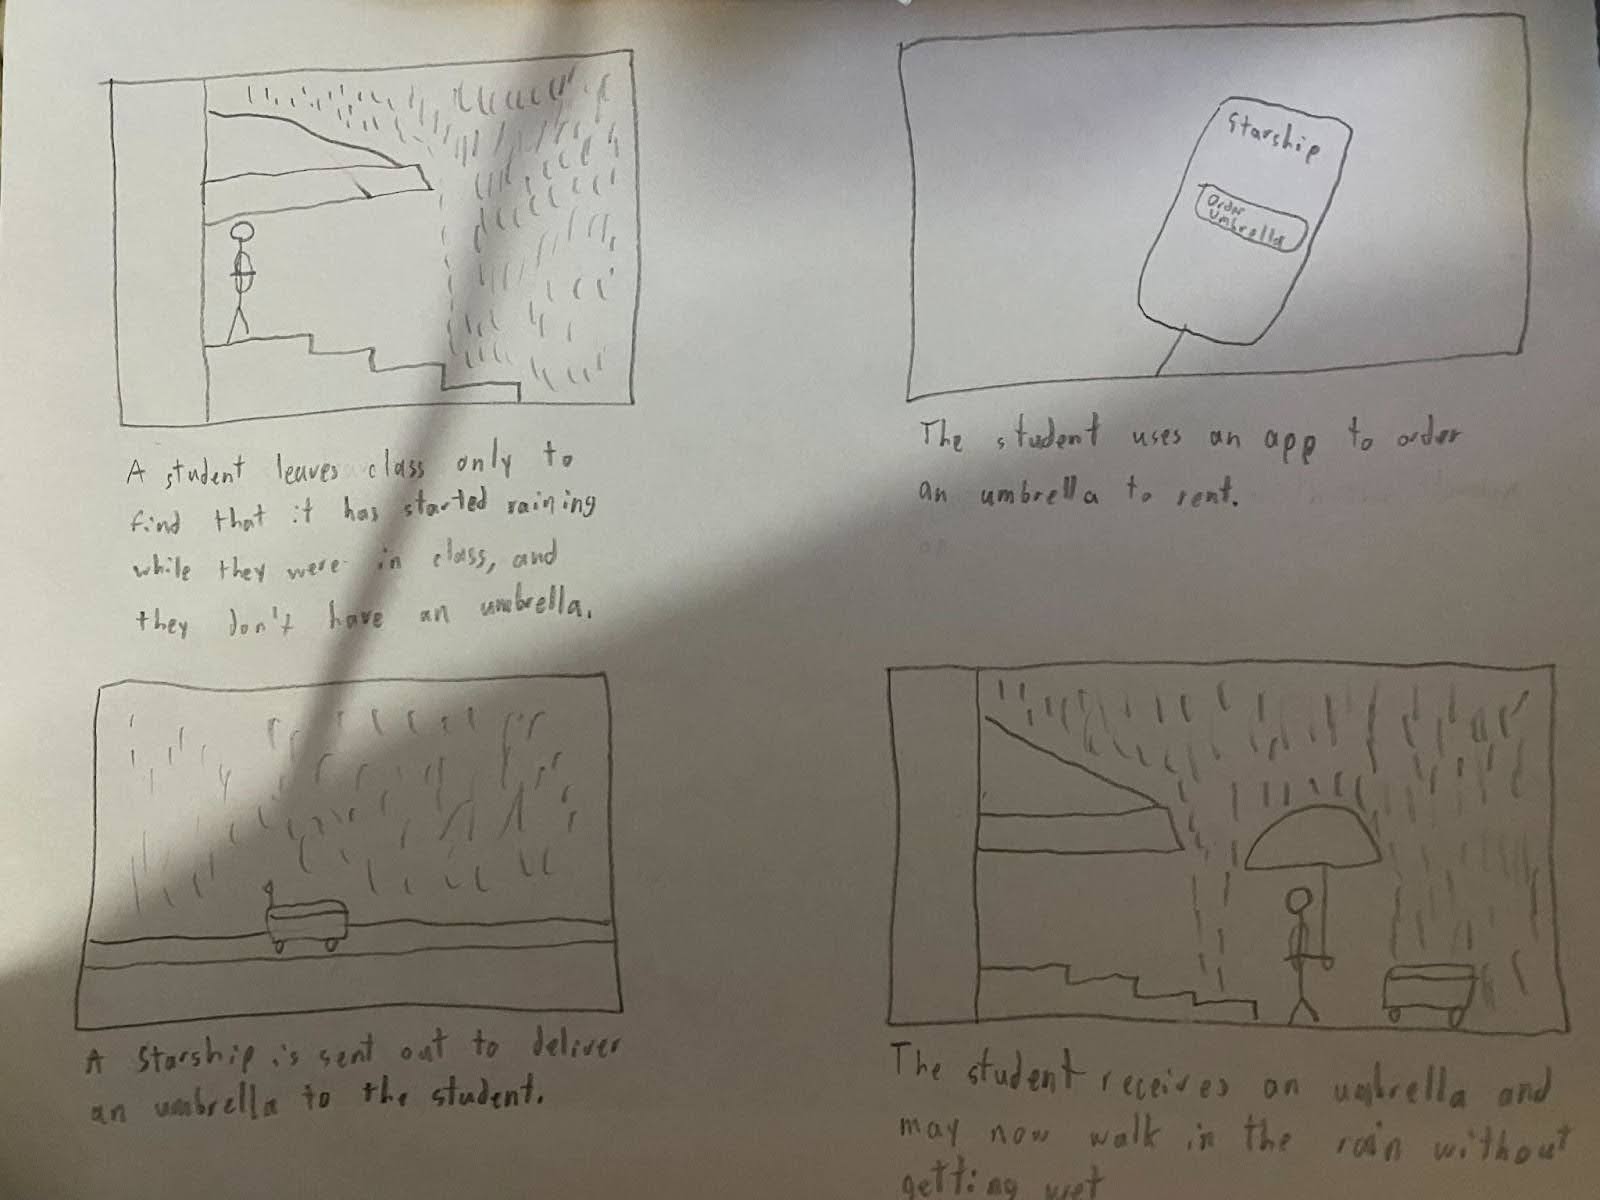 A student leaves class only to
find that it has started raining
while they were in class, and
they don't have an umbrella.
Starship
Order
Umbrella
The student uses an app to order
an umbrella to rent.
A Starship is sent out to deliver
an umbrella to the student.
The student receives an umbrella and
may now walk in the rain without
getting wet